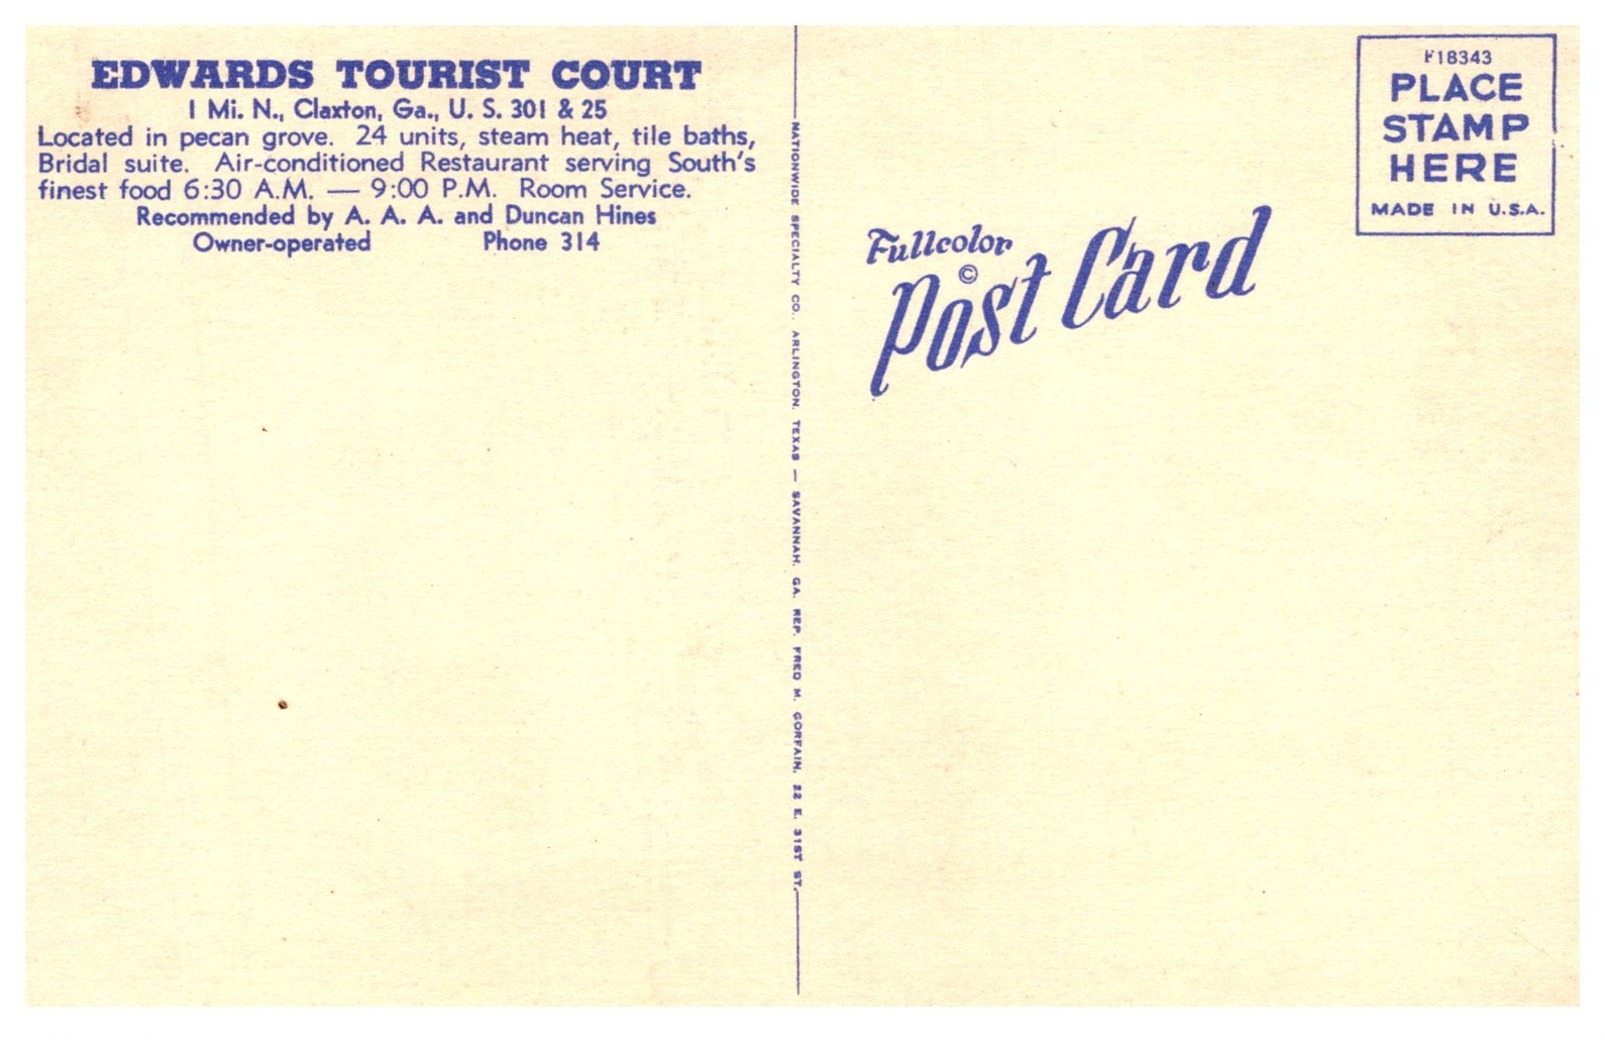 EDWARDS TOURIST COURT
1 Mi. N., Claxton, Ga., U. S. 301 & 25
Located in pecan grove. 24 units, steam heat, tile baths,
Bridal suite. Air-conditioned Restaurant serving South's
finest food 6:30 A.M. — 9:00 P.M. Room Service.
Recommended by A. A. A. and Duncan Hines
Owner-operated Phone 314
NATIONWIDE SPECIALTY CO., ARLINGTON, TEXAS — SAVANNAH, GA. REP. FRED M. GORFAIN, 22 E. 31ST ST.
Fullcolor
©
Post Card
F18343
PLACE
STAMP
HERE
MADE IN U.S.A.